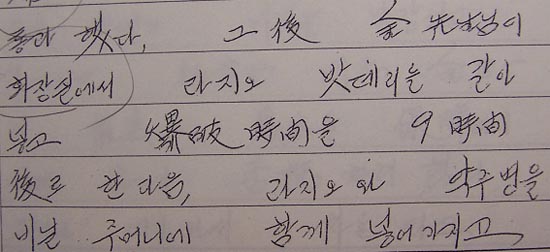 통과 했다, 그 後 金 先生님이
화장실에서 라지오 밧데리를 갈아
넣고 爆破 時間을 9 時間
後로 한 다음, 라지오 와 약주 병을
비닐 주머니에 함께 넣어 가지고